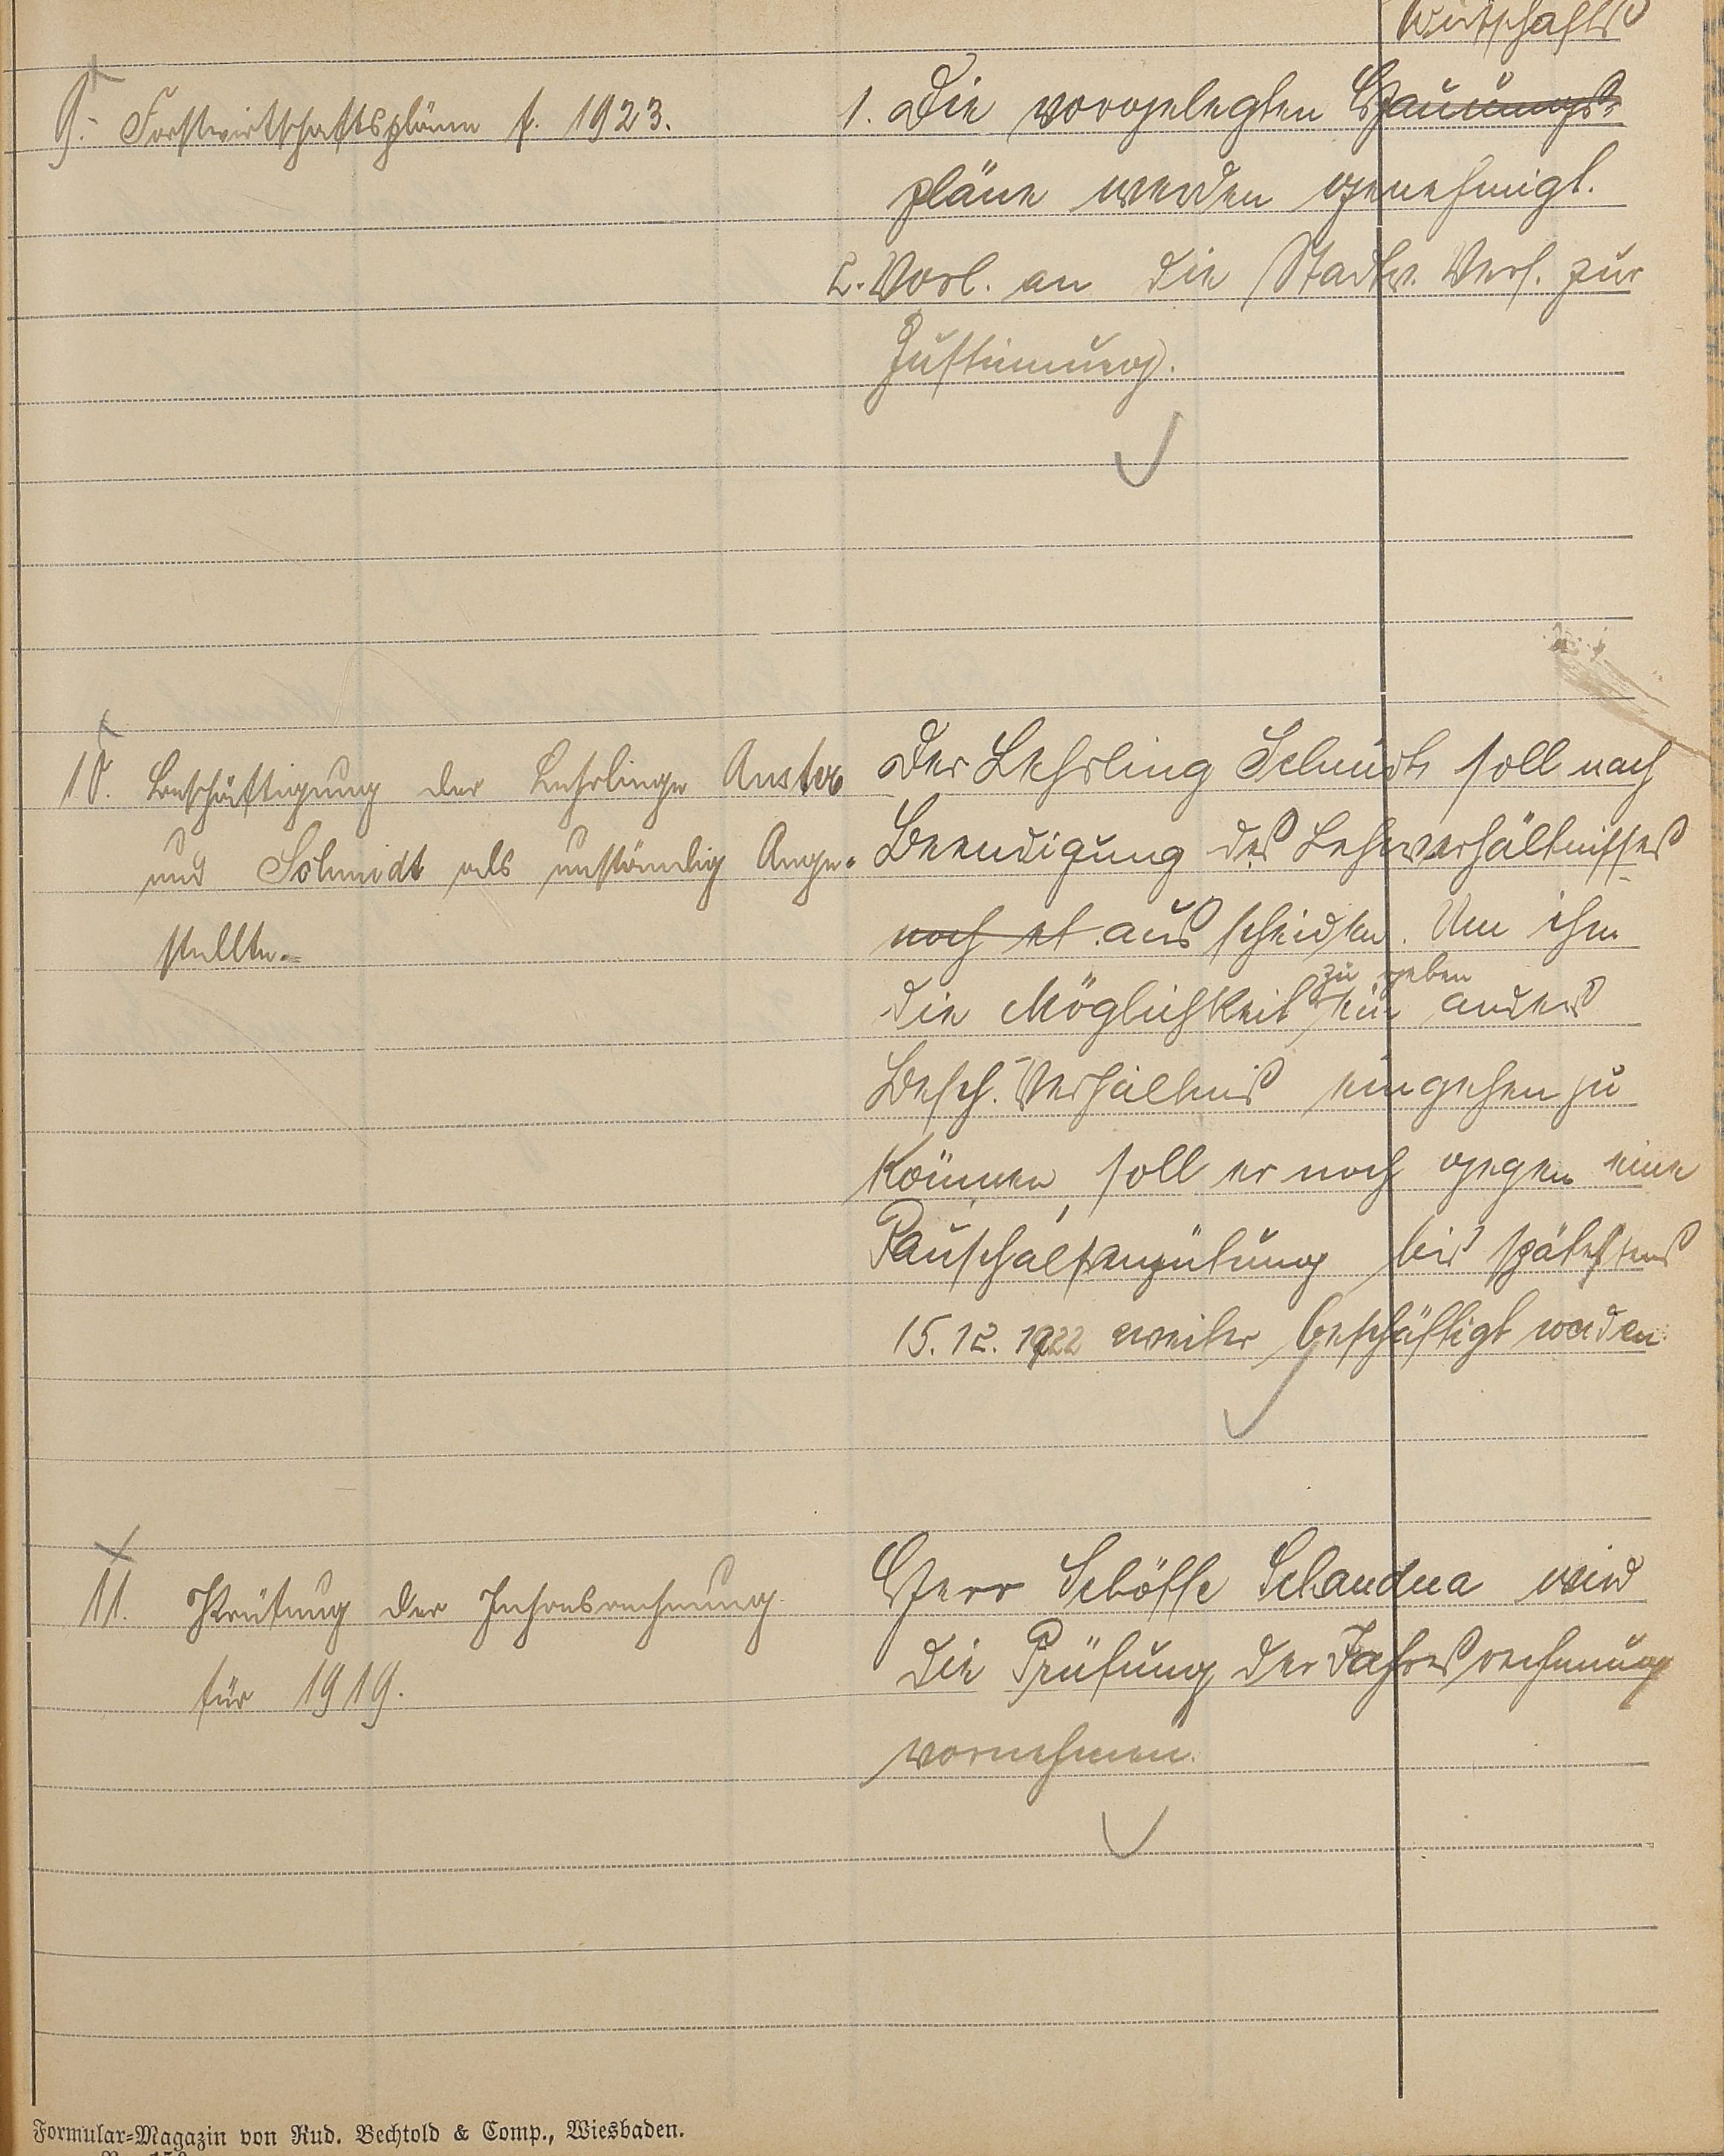 Wirtschafts
9. Forstwirtschaftspläne f. 1923.
1. Die vorgelegten Hauungs-
pläne werden genehmigt.
2. Vorl. an die Stadtv. Vers. zur
Zustimmung.
10. Beschäftigung der Lehrlinge
und Schmidt als unständig Ange-
stellte.
Der Lehrling Schmidt soll nach
Beendigung des Lehrverhältnisses
noch et. ausscheiden. Um ihm
zu geben
die Möglichkeit ein anders
Besch.-Verhältnis eingehen zu
können, soll er noch gegen eine
Pauschalvergütung bis spätestens
15.12.1922 weiter beschäftigt werden.
11. Prüfung der Jahresrechnung
für 1919.
Herr Schöffe wird
die Prüfung der Jahresrechnung
vornehmen.
Formular-Magazin von Rud. Bechtold & Comp., Wiesbaden.